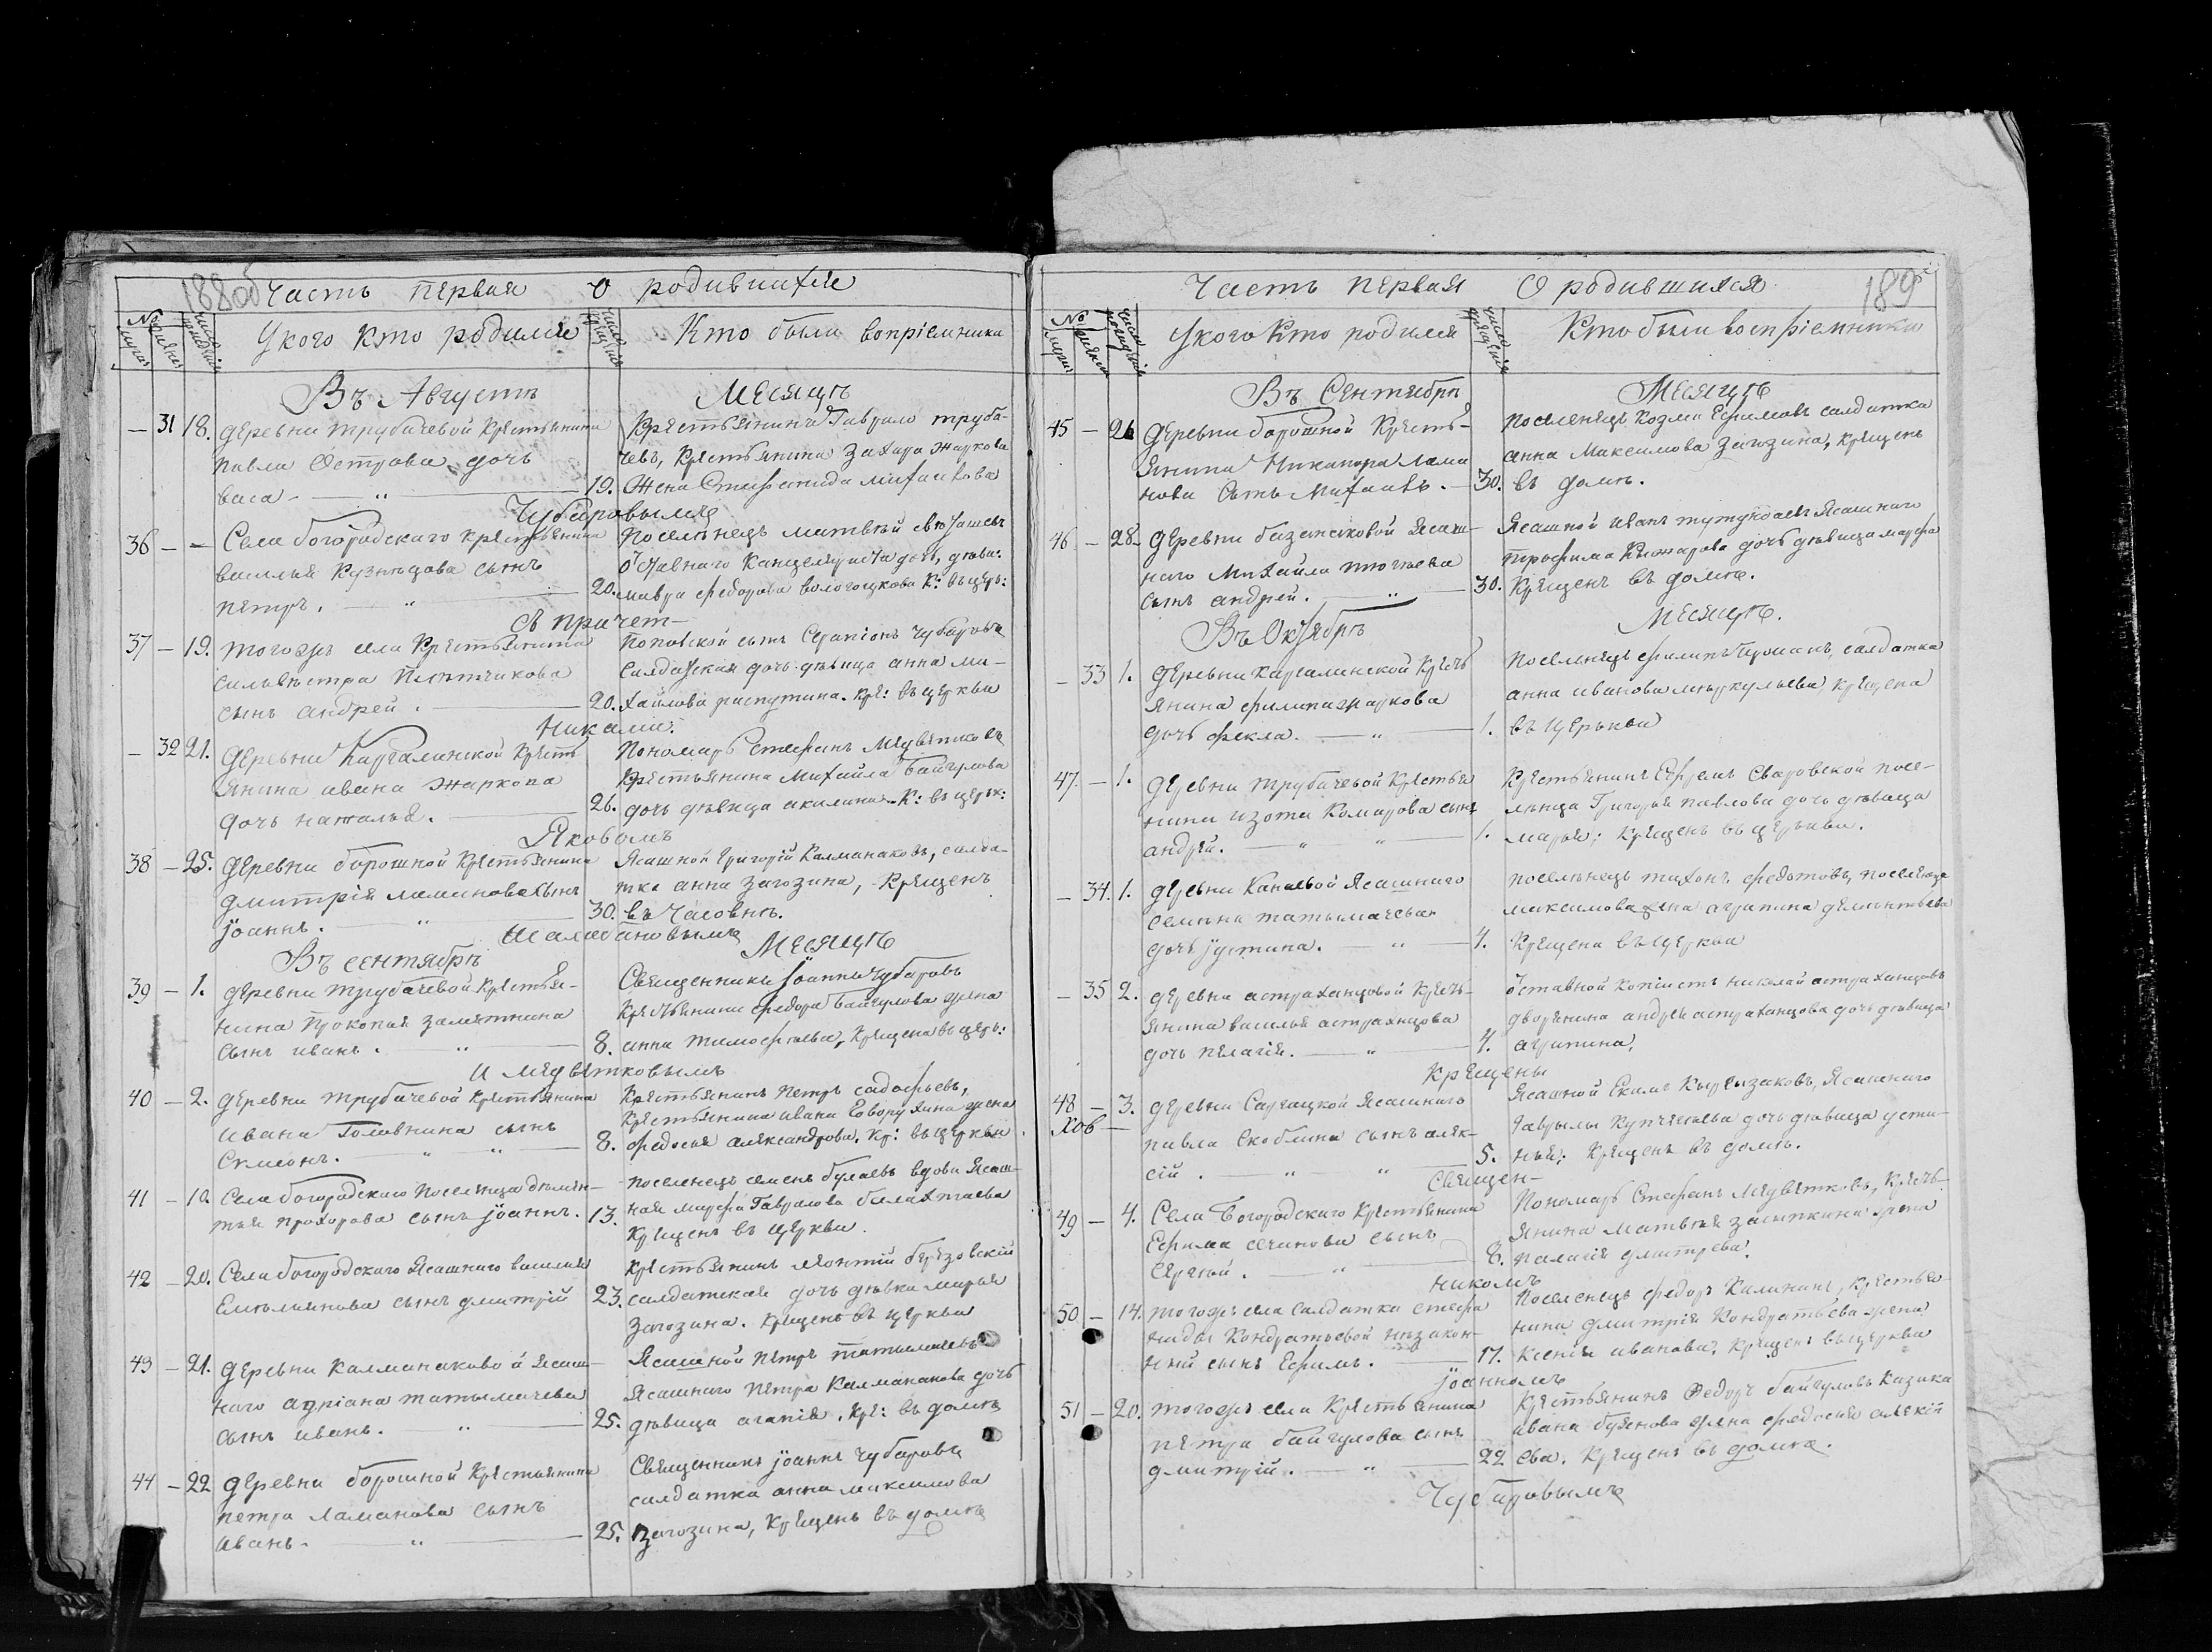 188об
Часть первая о родившихся
У кого кто родился
Кто были воприемники
Въ Августѣ Месяцѣ
31 18. деревни трубачевой крестьянина
павла Острова дочь
васа 19.
Крестьянинъ Гаврило труба-
чевъ, крестьянина Захара жаркова
жена Стефанида михаилова
Чубаровымъ
36 Села богородскаго крестьянина
василья Кузнѣцова сынъ
петръ. 20.
Поселѣнецъ матвѣй
дочь, дѣвиц:
мавра федорова вологоцкова к: въ церк:
съ причет-
37 19. тогожъ села Крестьянина
сильвѣстра
сынъ андрей. 20.
Поповской сынъ Серапионъ Чубаровъ
салдатская дочь дѣвица анна ми-
хайлова распутина. кре: въ церкви
никами.
32 21. деревни Каргалинской крест
янина ивана жаркова
дочь наталья. 26.
Пономарь Стефанъ Медвѣтковъ
Крестьянина Михайла Байгулова
дочь дѣвица акилина. К: въ церк:
Яковомъ
38 25. деревни борошной крестьянина
дмитрія ламанова сынъ
іоаннъ. 30.
Ясашной григорій Калманаковъ, салда-
тка анна Загозина, крещенъ
въ Часовнѣ.
Въ сентябрѣ Месяцѣ
39 1. деревни трубачевой крестья-
нина Прокопья замятнина
сынъ иванъ. 8.
Священникъ іоаннъ чубаровъ
крестьянина федора Байгулова жена
анна тимофѣева, крещена въ церк:
и медвѣтковымъ
40 2. деревни трубачевой крестьянина
ивана Головнина сынъ
Симеонъ. 8.
Крестьянинъ петръ садофьевъ,
крестьянина ивана Говорухина жена
федосья александрова. кр: въ церкви
41 10. Села богородскаго Поселѣнца дѣмен-
тья прохорова сынъ іоаннъ. 13.
поселенецъ семенъ булаевъ вдова ясаш-
ная марфа Гаврилова
крещенъ въ церкви.
42 20. Села богородскаго Ясашнаго василья
Емельянова сынъ дмитрій 23.
крестьянинъ леонтій березовскій
салдатская дочь дѣвка марья
Загозина. крещенъ въ церкви
43 21. деревни калманаковой ясаш-
наго адріана татымачева
сынъ иванъ. 25.
Ясашной петръ татымачевъ
Ясашнаго петра Калманакова дочь
дѣвица агапія. кре: въ домѣ
44 22 деревни борошной крестьянина
петра ламанова сынъ
иванъ. 25.
Священникъ іоаннъ чубаровъ
салдатка анна максимова
Загозина, крещенъ въ домѣ
189
Часть первая О родившихся
У кого кто родился
Кто были воспріемники
Въ Сентябрѣ Месяцѣ
45 26 деревни борошной Кресть-
янина Никанора Лама
нова Сынъ Михаилъ. 30.
поселенецъ козма Ефимовъ салдатка
анна Максимова Загозина, крещенъ
въ домѣ.
46 28 деревни базанаковой ясаш-
наго Михайла
сынъ андрей. 30.
Ясашной иванъ тутукаевъ ясашнаго
трофима дочь дѣвица марфа
крещенъ въ домѣ.
Въ Октябрѣ Месяцѣ.
33 1. деревни каргалинской крест
янина филипа жаркова
дочь фекла. 1.
поселенецъ филипъ салдатка
анна иванова меркульева, крещена
въ церькви
47 1. деревни трубачевой крестья
нина изота Комарова сынъ
андрей. 1.
крестьянинъ Ефремъ Сваровской посе-
лѣнца Григорья павлова дочь дѣвица
марья; крещенъ въ церькви.
34. 1. деревни Канаевой ясашнаго
семена татымачева
дочь іустина. 4.
поселѣнецъ тихонъ федотовъ, поселенца
максимова жена агрипина дементьева
крещена въ церкви
35 2. деревни астраханцовой крест-
янина василья астраханцова
дочь пелагія. 4.
Оставной копіистъ николай астраханцовъ
дворянина андрея астраханцова дочь дѣвица
агрипина,
Крещены
48 3. деревни Саргацкой Ясашнаго
павла Скоблина сынъ алек-
сій. 5.
Ясашной Екимъ Кыргызаковъ, ясашнаго
Гаврилы дочь дѣвица усти-
нья; крещенъ въ домѣ.
Священ-
49 4. Села Богородскаго Крестьянина
Ефима сынъ
Сергѣй. 8.
Пономарь Стефанъ Медвѣтковъ, крест-
янина матвѣя засыпкина жена
палагія дмитрева.
никомъ
50 14. тогожъ села салдатки стефа
ниды Кондратьевой незакон-
ный сынъ Ефимъ. 17.
Поселенецъ федоръ Калининъ, крестья-
нина дмитрія Кондратьева жена
ксенія иванова. крещенъ въ церкви
іоанномъ
51 20. тогожъ села Крестьянина
петра байгулова сынъ
дмитрій. 22
Крестьянинъ Федоръ байгуловъ казака
ивана буянова жена федосья алекси
ева. крещенъ въ домѣ.
Чубаровымъ